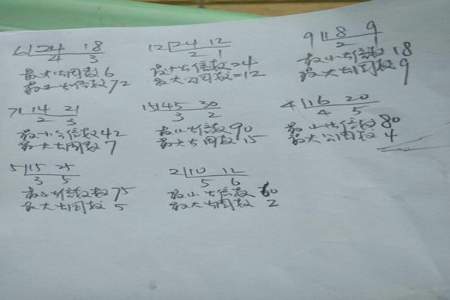 6 24 18
4 3
最大公因数6
最小公倍数72
12 24 12
2 1
最小公倍数24
最大公因数=12
9 18 9
2 1
最小公倍数18
最大公因数9
7 14 21
2 3
最小公倍数42
最大公因数7
15 45 30
3 2
最小公倍数90
最大公因数15
4 16 20
4 5
最小公倍数80
最大公因数4
5 15 25
3 5
最小公倍数75
最大公因数5
2 10 12
5 6
最小公倍数60
最大公因数2